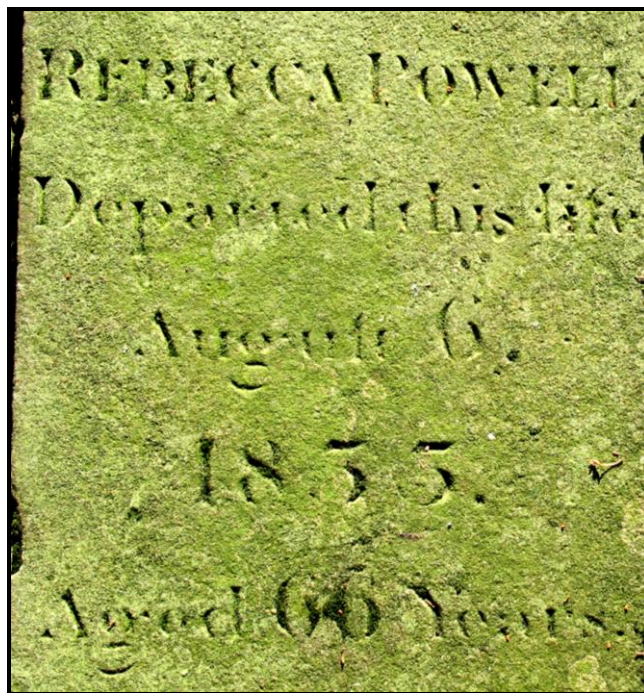 REBECCA POWELL
Departed this life
August 6.
Aged 66 Years.